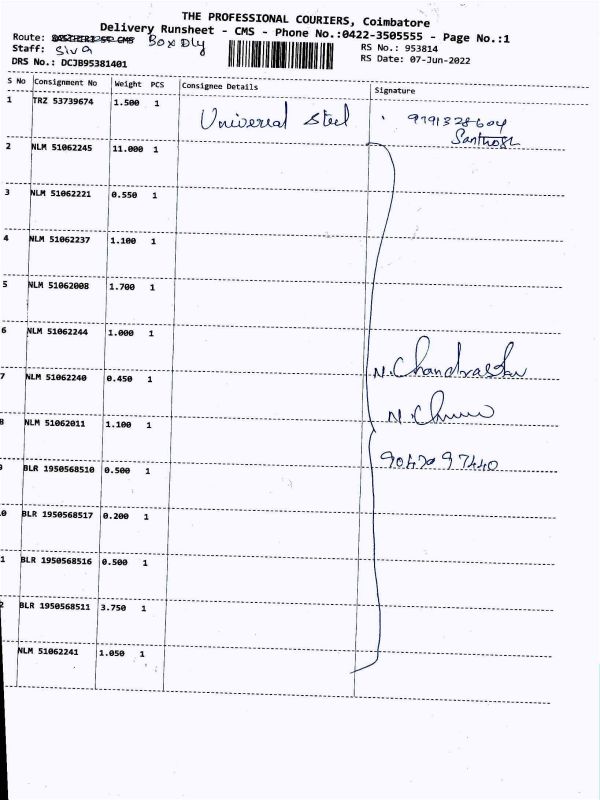 THE PROFESSIONAL COURIERS, Coimbatore
Delivery Runsheet - CMS - Phone No.:0422-3505555 - Page No.:1
Route: Box Dly
Staff: Siva
DRS No.: DCJB95381401
RS No.: 953814
RS Date: 07-Jun-2022
S No Consignment No Weight PCS Consignee Details Signature
1 TRZ 53739674 1.500 1 Universal Steel
Santhosh
2 NLM 51062245 11.000 1
3 NLM 51062221 0.550 1
4 NLM 51062237 1.100 1
5 NLM 51062008 1.700 1
6 NLM 51062244 1.000 1
7 NLM 51062240 0.450 1
8 NLM 51062011 1.100 1
9 BLR 1950568510 0.500 1
0 BLR 1950568517 0.200 1
1 BLR 1950568516 0.500 1
2 BLR 1950568511 3.750 1
NLM 51062241 1.050 1